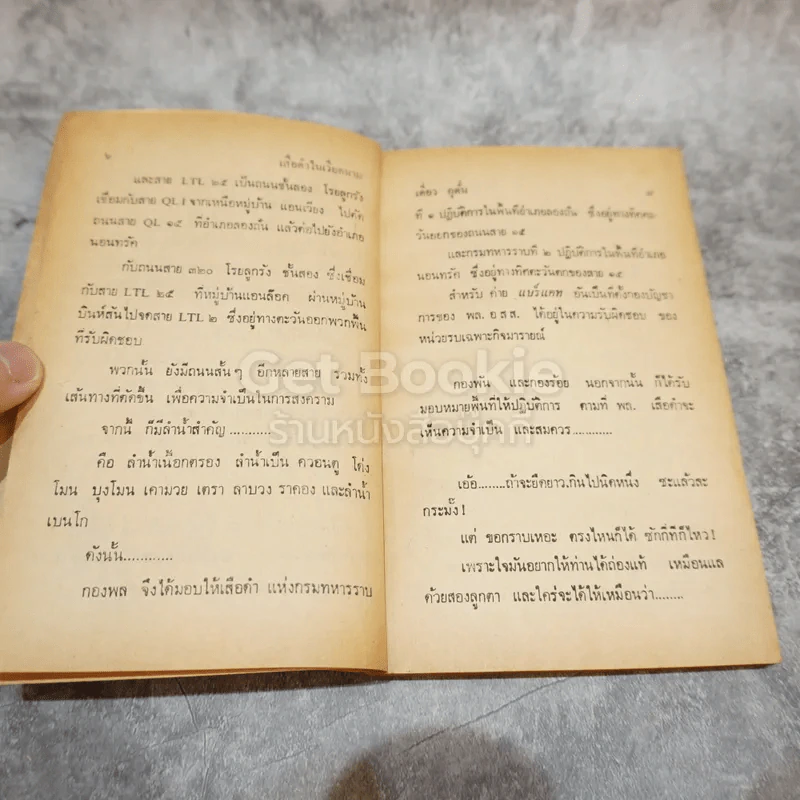 ๖ เสือดำในเวียดนาม
และสาย LTL ๒๕ เป็นถนนชั้นสอง โรยลูกรัง
เชื่อมกับสาย QL I จากเหนือหมู่บ้าน แอนเวียง ไปตัด
ถนนสาย QL ๑๕ ที่อำเภอลองถัน แล้วต่อไปยังอำเภอ
นอนทรัค
กับถนนสาย ๓๒๐ โรยลูกรัง ชั้นสอง ซึ่งเชื่อม
กับสาย LTL ๒๕ ที่หมู่บ้านแอนล๊อค ผ่านหมู่บ้าน
บินห์สันไปจดสาย LTL ๒ ซึ่งอยู่ทางตะวันออกพวกพื้น
ที่รับผิดชอบ
พวกนั้น ยังมีถนนสั้นๆ อีกหลายสาย รวมทั้ง
เส้นทางที่ตัดขึ้น เพื่อความจำเป็นในการสงคราม
จากนี้ ก็มีลำน้ำสำคัญ...........
คือ ลำน้ำเนือกตรอง ลำน้ำเป็น ควอนตู โด่ง
โมน บุงโมน เคามวย เตรา ลาบวง ราคอง และลำน้ำ
เบนโก
ดังนั้น............
กองพล จึงได้มอบให้เสือดำ แห่งกรมทหารราบ
เดี่ยว อุดั้น
ที่ ๑ ปฏิบัติการในพื้นที่อำเภอลองถัน ซึ่งอยู่ทางทิศตะ
วันออกของถนนสาย ๑๕
และกรมทหารราบที่ ๒ ปฏิบัติการในพื้นที่อำเภอ
นอนทรัค ซึ่งอยู่ทางทิศตะวันตกของสาย ๑๕
สำหรับ ค่าย แบร์แคท อันเป็นที่ตั้งกองบัญชา
การของ พล. อ ส ส. ได้อยู่ในความรับผิดชอบ ของ
หน่วยรบเฉพาะกิจนารายณ์
กองพัน และกองร้อย นอกจากนั้น ก็ได้รับ
มอบหมายพื้นที่ให้ปฏิบัติการ ตามที่ พล. เสือดำจะ
เห็นความจำเป็น และสมควร...........
เอ้อ........ถ้าจะยืดยาวเกินไปนิดหนึ่ง ซะแล้วละ
กระมั้ง!
แต่ ขอกราบเหอะ ตรงไหนก็ได้ ซักกี่ทีก็ไหว!
เพราะใจมันอยากให้ท่านได้ถ่องแท้ เหมือนแล
ด้วยสองลูกตา และใคร่จะได้ให้เหมือนว่า........
Get Bookie
ร้านหนังสือุกกี้